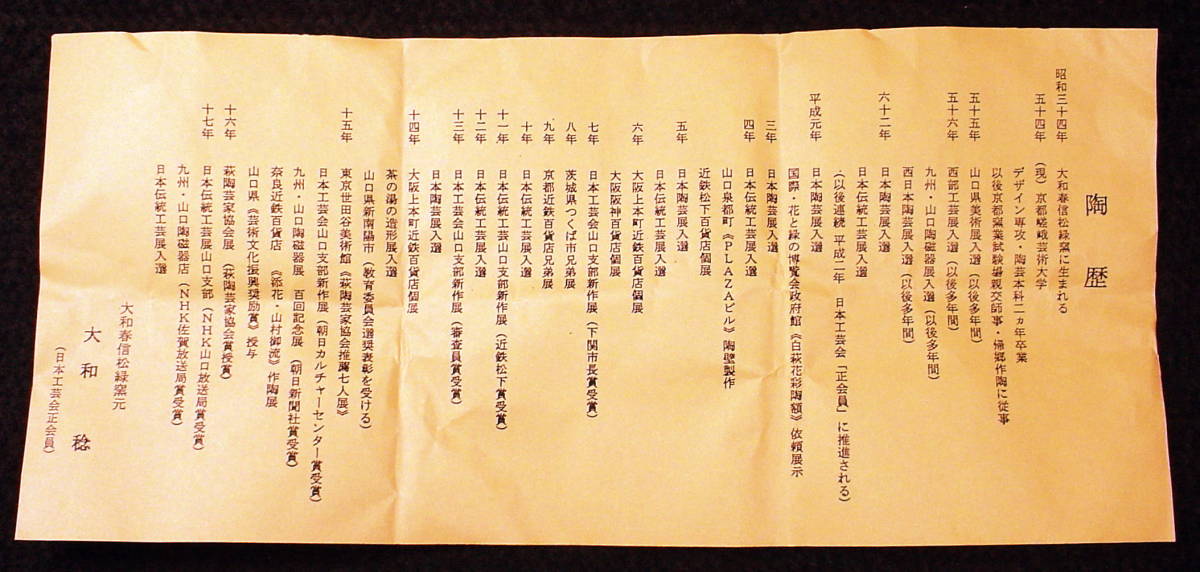 陶歴
昭和三十四年 大和春信松緑窯に生まれる
五十四年 (現)京都嵯峨芸術大学
デザイン専攻・陶芸本科二ヵ年卒業
以後京都窯業試験場親交師事・帰郷作陶に従事
五十五年 山口県美術展入選(以後多年間)
五十六年 西部工芸展入選(以後多年間)
九州・山口陶磁器展入選(以後多年間)
西日本陶芸展入選(以後多年間)
六十二年 日本陶芸展入選
日本伝統工芸展入選
(以後連続 平成二年 日本工芸会「正会員」に推進される)
平成元年 日本陶芸展入選
国際・花と緑の博覧会政府館《白萩花彩陶額》依頼展示
三年 日本陶芸展入選
四年 日本伝統工芸展入選
山口泉都町《PLAZAビル》陶壁製作
近鉄松下百貨店個展
五年 日本陶芸展入選
日本伝統工芸展入選
六年 大阪上本町近鉄百貨店個展
大阪阪神百貨店個展
七年 日本工芸会山口支部新作展(下関市長賞受賞)
八年 茨城県つくば市兄弟展
九年 京都近鉄百貨店兄弟展
十年 日本伝統工芸展入選
十一年 日本伝統工芸山口支部新作展(近鉄松下賞受賞)
十二年 日本伝統工芸展入選
十三年 日本工芸会山口支部新作展(審査員賞受賞)
日本陶芸展入選
十四年 大阪上本町近鉄百貨店個展
茶の湯の造形展入選
山口県新南陽市(教育委員会選奨表彰を受ける)
十五年 東京世田谷美術館《萩陶芸家協会推薦七人展》
日本工芸会山口支部新作展(朝日カルチャーセンター賞受賞)
九州・山口陶磁器展 百回記念展(朝日新聞社賞受賞)
奈良近鉄百貨店 《添花・山村御流》作陶展
山口県《芸術文化振興奨励賞》授与
十六年 萩陶芸家協会展(萩陶芸家協会賞授賞)
十七年 日本伝統工芸展山口支部(NHK山口放送局賞受賞)
九州・山口陶磁器店(NHK佐賀放送局賞受賞)
日本伝統工芸展入選
大和春信松緑窯元
大和 稔
(日本工芸会正会員)